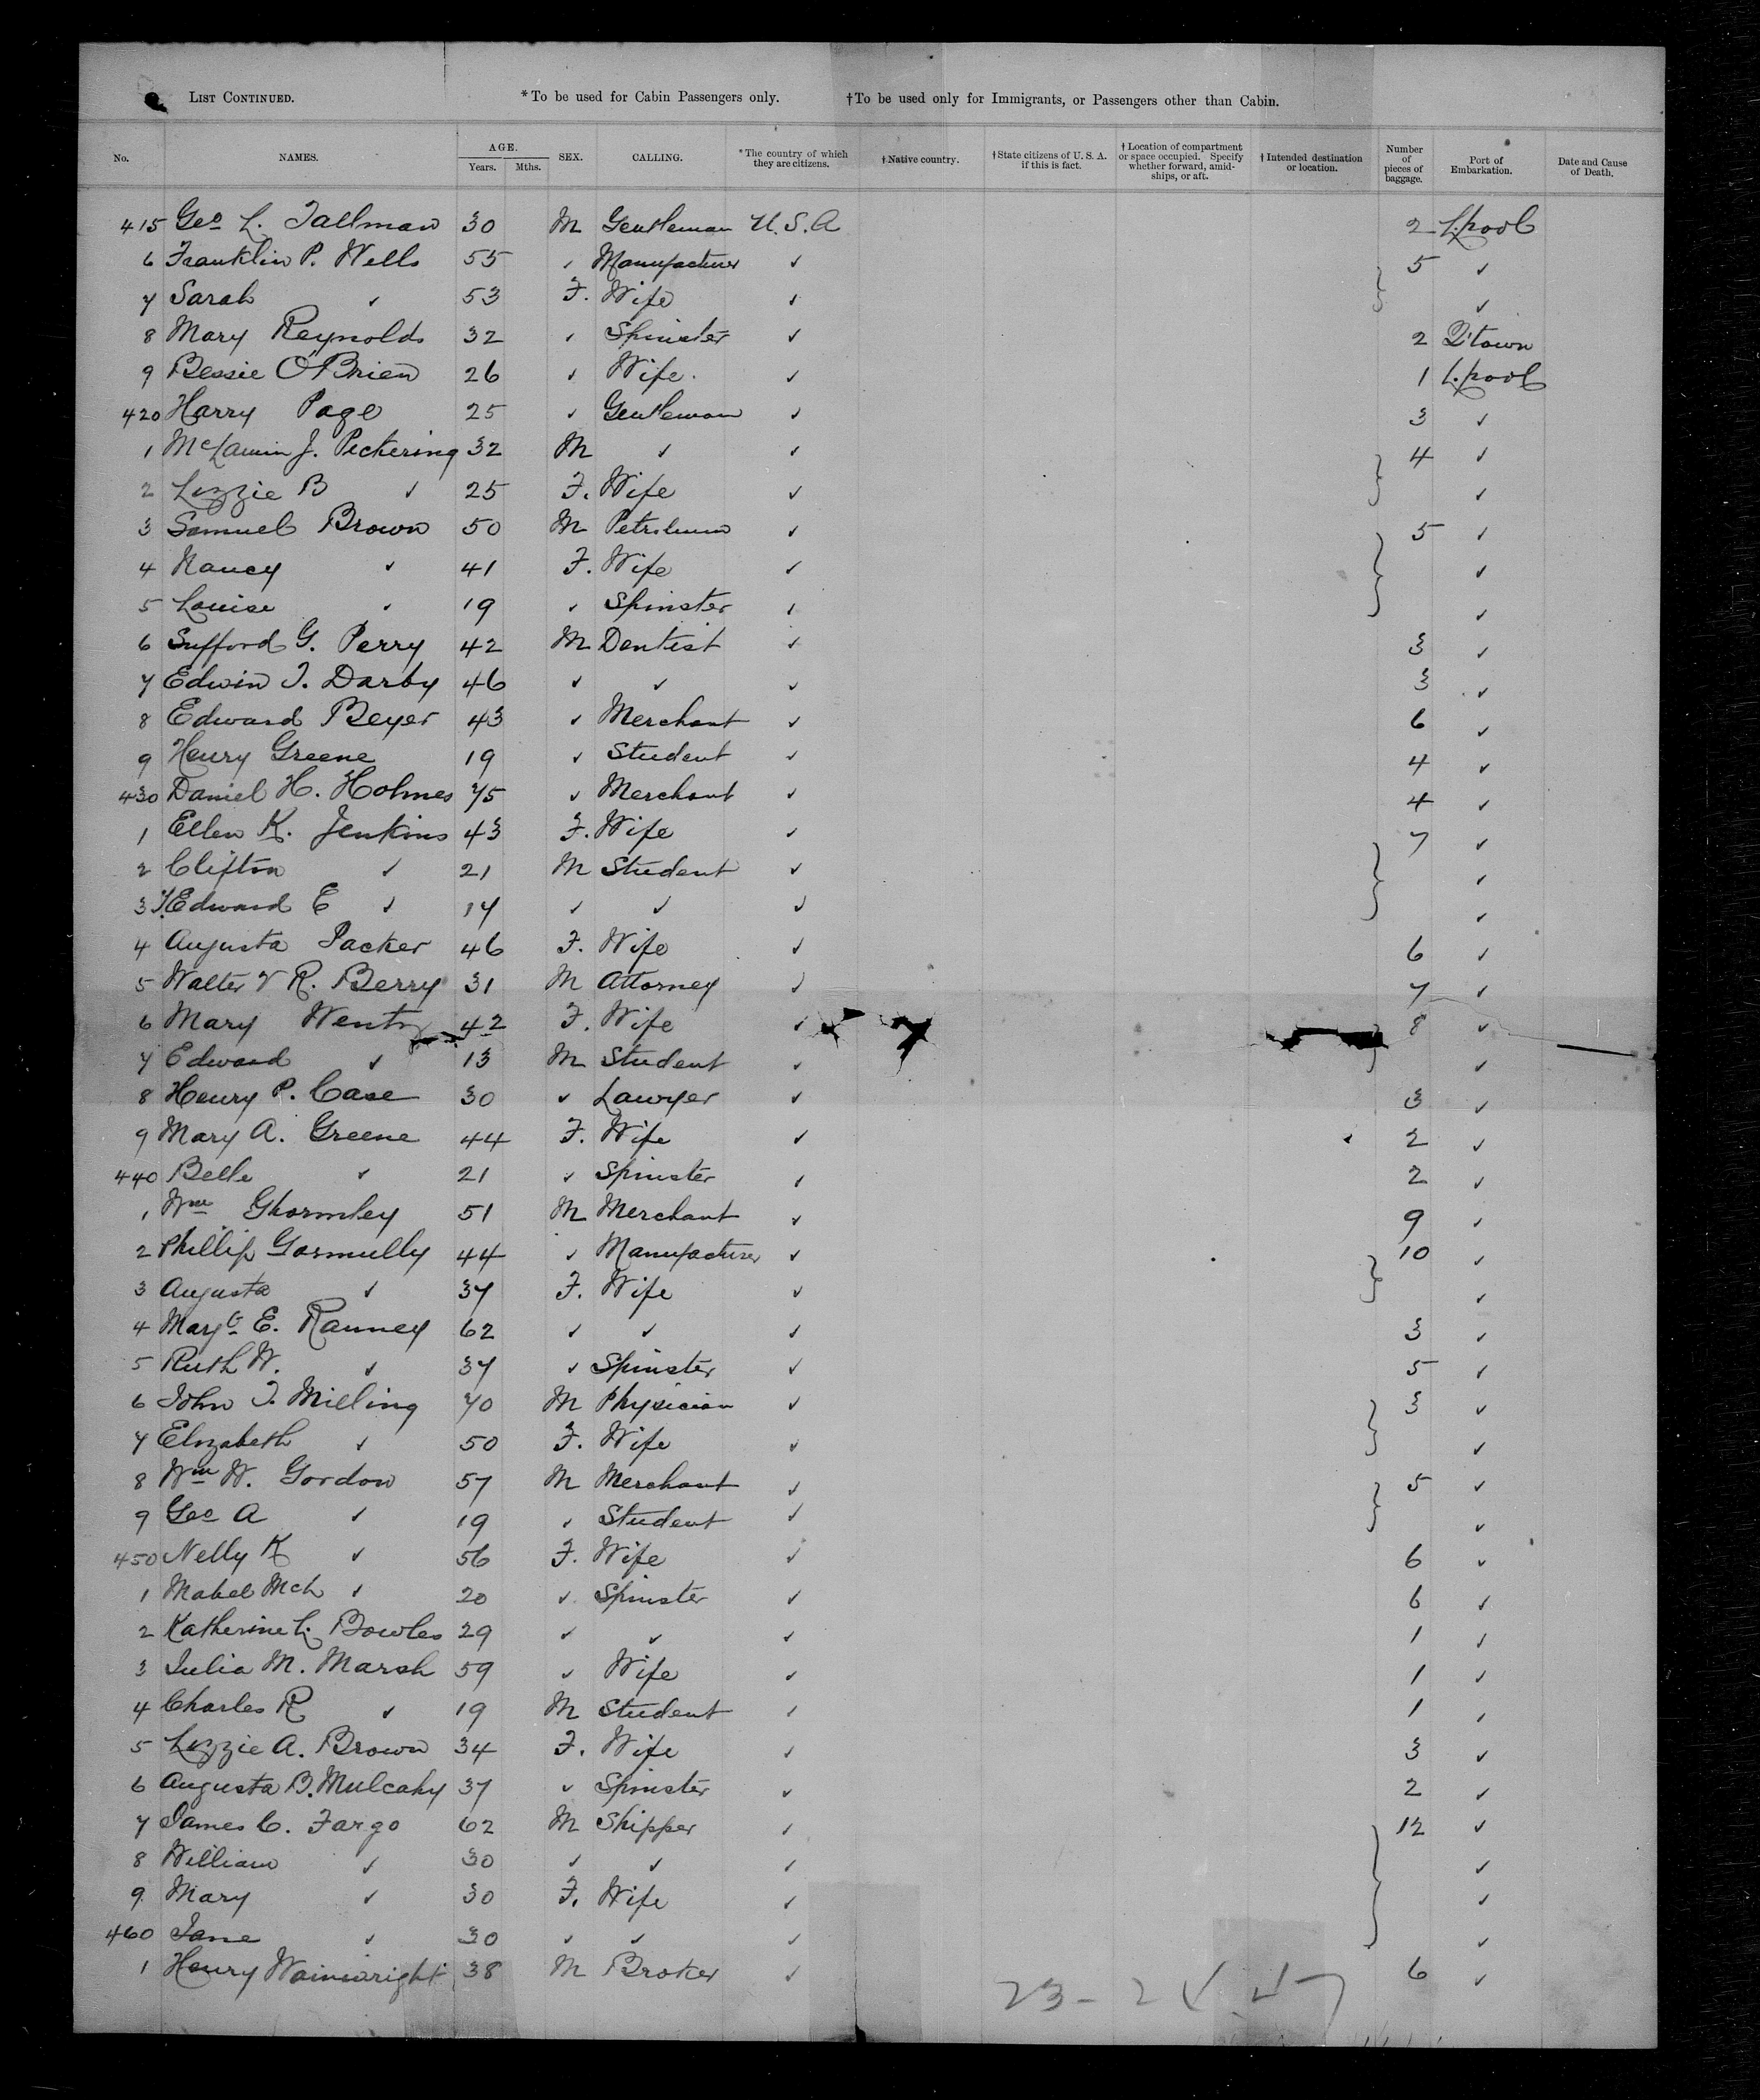 LIST CONTINUED. *To be used for Cabin Passengers only. †To be used only for Immigrants, or Passengers other than Cabin.
No. NAMES. AGE. Years. Mths. SEX. CALLING. *The country of which they are citizens. †Native country. †State citizens of U. S. A. if this is fact. †Location of compartment or space occupied. Specify whether forward, amidships, or aft. †Intended destination or location. Number of pieces of baggage. Port of Embarkation. Date and Cause of Death.
415 Geo L. Tallman 30 M Gentleman U.S.A 2 L.pool
6 Franklin P. Wells 55 ✓ Manufacturer ✓ 5 ✓
7 Sarah ✓ 53 F. Wife ✓ ✓
8 Mary Reynolds 32 ✓ Spinster ✓ 2 Q'town
9 Bessie O'Brien 26 ✓ Wife ✓ 1 L.pool
420 Harry Page 25 ✓ Gentleman ✓ 3 ✓
1 J. Pickering 32 M ✓ ✓ 4 ✓
2 Lizzie B ✓ 25 F. Wife ✓ ✓
3 Samuel Brown 50 M Petroleum ✓ 5 ✓
4 Nancy ✓ 41 F. Wife ✓ ✓
5 Louise ✓ 19 ✓ Spinster ✓ ✓
6 Safford G. Perry 42 M Dentist ✓ 3 ✓
7 Edwin T. Darby 46 ✓ ✓ ✓ 3 ✓
8 Edward Beyer 43 ✓ Merchant ✓ 6 ✓
9 Henry Greene 19 ✓ Student ✓ 4 ✓
430 Daniel H. Holmes 75 ✓ Merchant ✓ 4 ✓
1 Ellen K. Jenkins 43 F. Wife ✓ 7 ✓
2 Clifton ✓ 21 M Student ✓ ✓
3 Edward E ✓ 14 ✓ ✓ ✓ ✓
4 Augusta Packer 46 F. Wife ✓ 6 ✓
5 Walter V R. Berry 31 M Attorney ✓ 7 ✓
6 Mary Wentz 42 F. Wife ✓ 8 ✓
7 Edward ✓ 13 M Student ✓ ✓
8 Henry P. Case 30 ✓ Lawyer ✓ 3 ✓
9 Mary A. Greene 44 F. Wife ✓ 2 ✓
440 Belle ✓ 21 ✓ Spinster ✓ 2 ✓
1 Wm Ghormley 51 M Merchant ✓ 9 ✓
2 Phillip Gormully 44 ✓ Manufacturer ✓ 10 ✓
3 Augusta ✓ 37 F. Wife ✓ ✓
4 Margt E. Ranney 62 ✓ ✓ ✓ 3 ✓
5 Ruth W. ✓ 37 ✓ Spinster ✓ 5 ✓
6 John T. Milling 70 M Physician ✓ 3 ✓
7 Elizabeth ✓ 50 F. Wife ✓ ✓
8 Wm W. Gordon 57 M Merchant ✓ 5 ✓
9 Geo A ✓ 19 ✓ Student ✓ ✓
450 Nelly K ✓ 56 F. Wife ✓ 6 ✓
1 Mabel McL ✓ 20 ✓ Spinster ✓ 6 ✓
2 Katherine L. Bowles 29 ✓ ✓ ✓ 1 ✓
3 Julia M. Marsh 59 ✓ Wife ✓ 1 ✓
4 Charles R ✓ 19 M Student ✓ 1 ✓
5 Lizzie A. Brown 34 F. Wife ✓ 3 ✓
6 Augusta B. Mulcahy 37 ✓ Spinster ✓ 2 ✓
7 James C. Fargo 62 M Shipper ✓ 12 ✓
8 William ✓ 30 ✓ ✓ ✓ ✓
9 Mary ✓ 30 F. Wife ✓ ✓
460 Jane ✓ 30 ✓ ✓ ✓ ✓
1 Henry Wainwright 38 M Broker ✓ 6 ✓